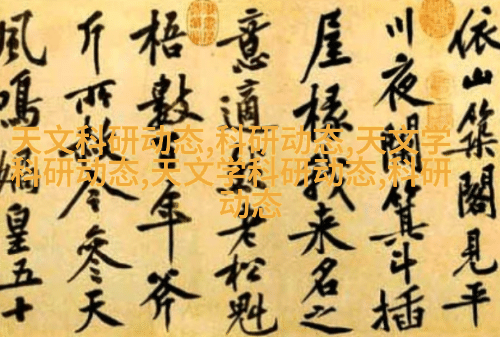 依山築閣見平
川夜闌箕斗插
屋椽我來名之
意適然老松魁
梧數百年斧
斤所赦今參天
風鳴媧皇五十
天文科研动态,科研动态,天文学
科研动态,天文学科研动态,科研
动态